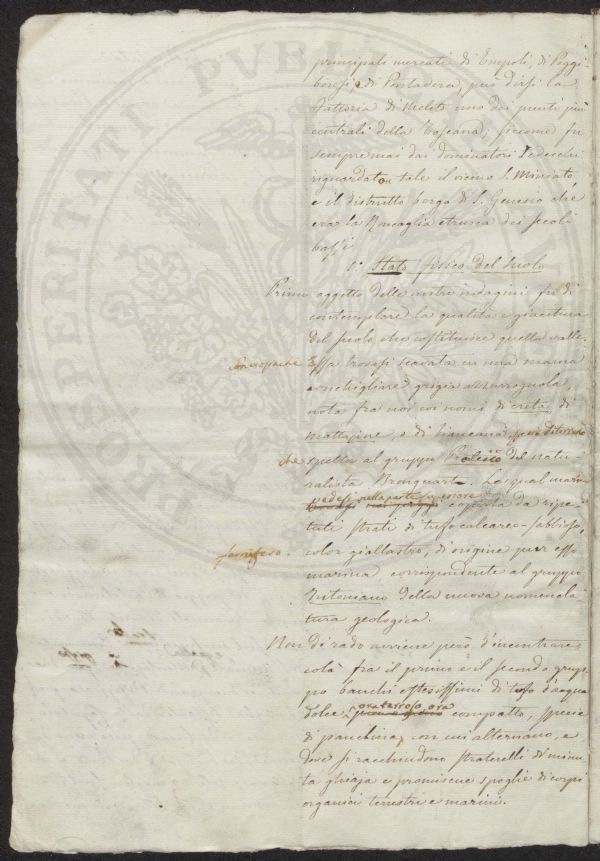 principali mercati di Empoli, di Poggi-
bonsi, e di Pontadera, può dirsi la
Fattoria di Meleto uno dei punti più
centrali della Toscana; siccome fu
sempre mai dai dominatori Tedeschi
riguardato tale il vicino S. Miniato,
e il distrutto borgo di S. Genesio che
era la Roncaglia etrusca dei secoli
bassi.
1.° Stato fisico del Suolo
Primo oggetto delle nostre indagini fu di
contemplare la qualità e giacitura
del suolo, che costituisce quella valle.
Essa trovasi scavata in una marna
conchigliare grigia azzurrognola,
nota fra noi coi nomi di creta, di
mattajone, e di biancana,
che
spetta al gruppo del natu-
ralista Brongniart. La qual marna
vedesi nella parte superiore
coperta da ripe-
tuti strati di tufo calcareo-sabbioso,
color giallastro, di origine pur esso
marina corrispondente al gruppo
della nuova nomencla-
tura geologica.
Non di rado avviene però d'incontrare
colà fra il primo e il secondo grup-
po banchi estesissimi di tufo d'acqua
ora terroso, ora
dolce compatto, specie
di panchina, con cui alternano, e
dove si racchiudono straterelli di minu-
ta ghiaja e promiscue spoglie di corpi
organici terrestri e marini.
PROSPERITATI PUBLICAE